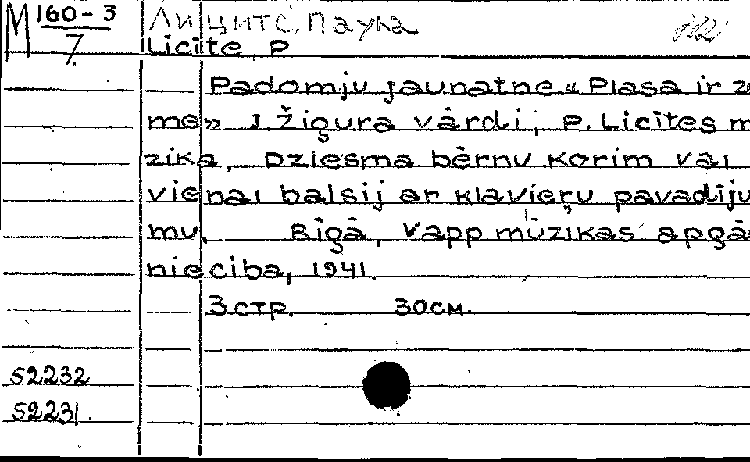 M 160-3
7
Лицитс, Паула
Licite, P
Padomju jaunatne „Plaša ir ze
me” J. Žigura vārdi, P. Licites mū
zika, Dziesma bērnu korim vai
vienai balsij ar klavieru pavadīju
mu. Rīgā, Vapp mūzikas apgā
niecība, 1941.
3 стр. 30 см.
52232
52231.